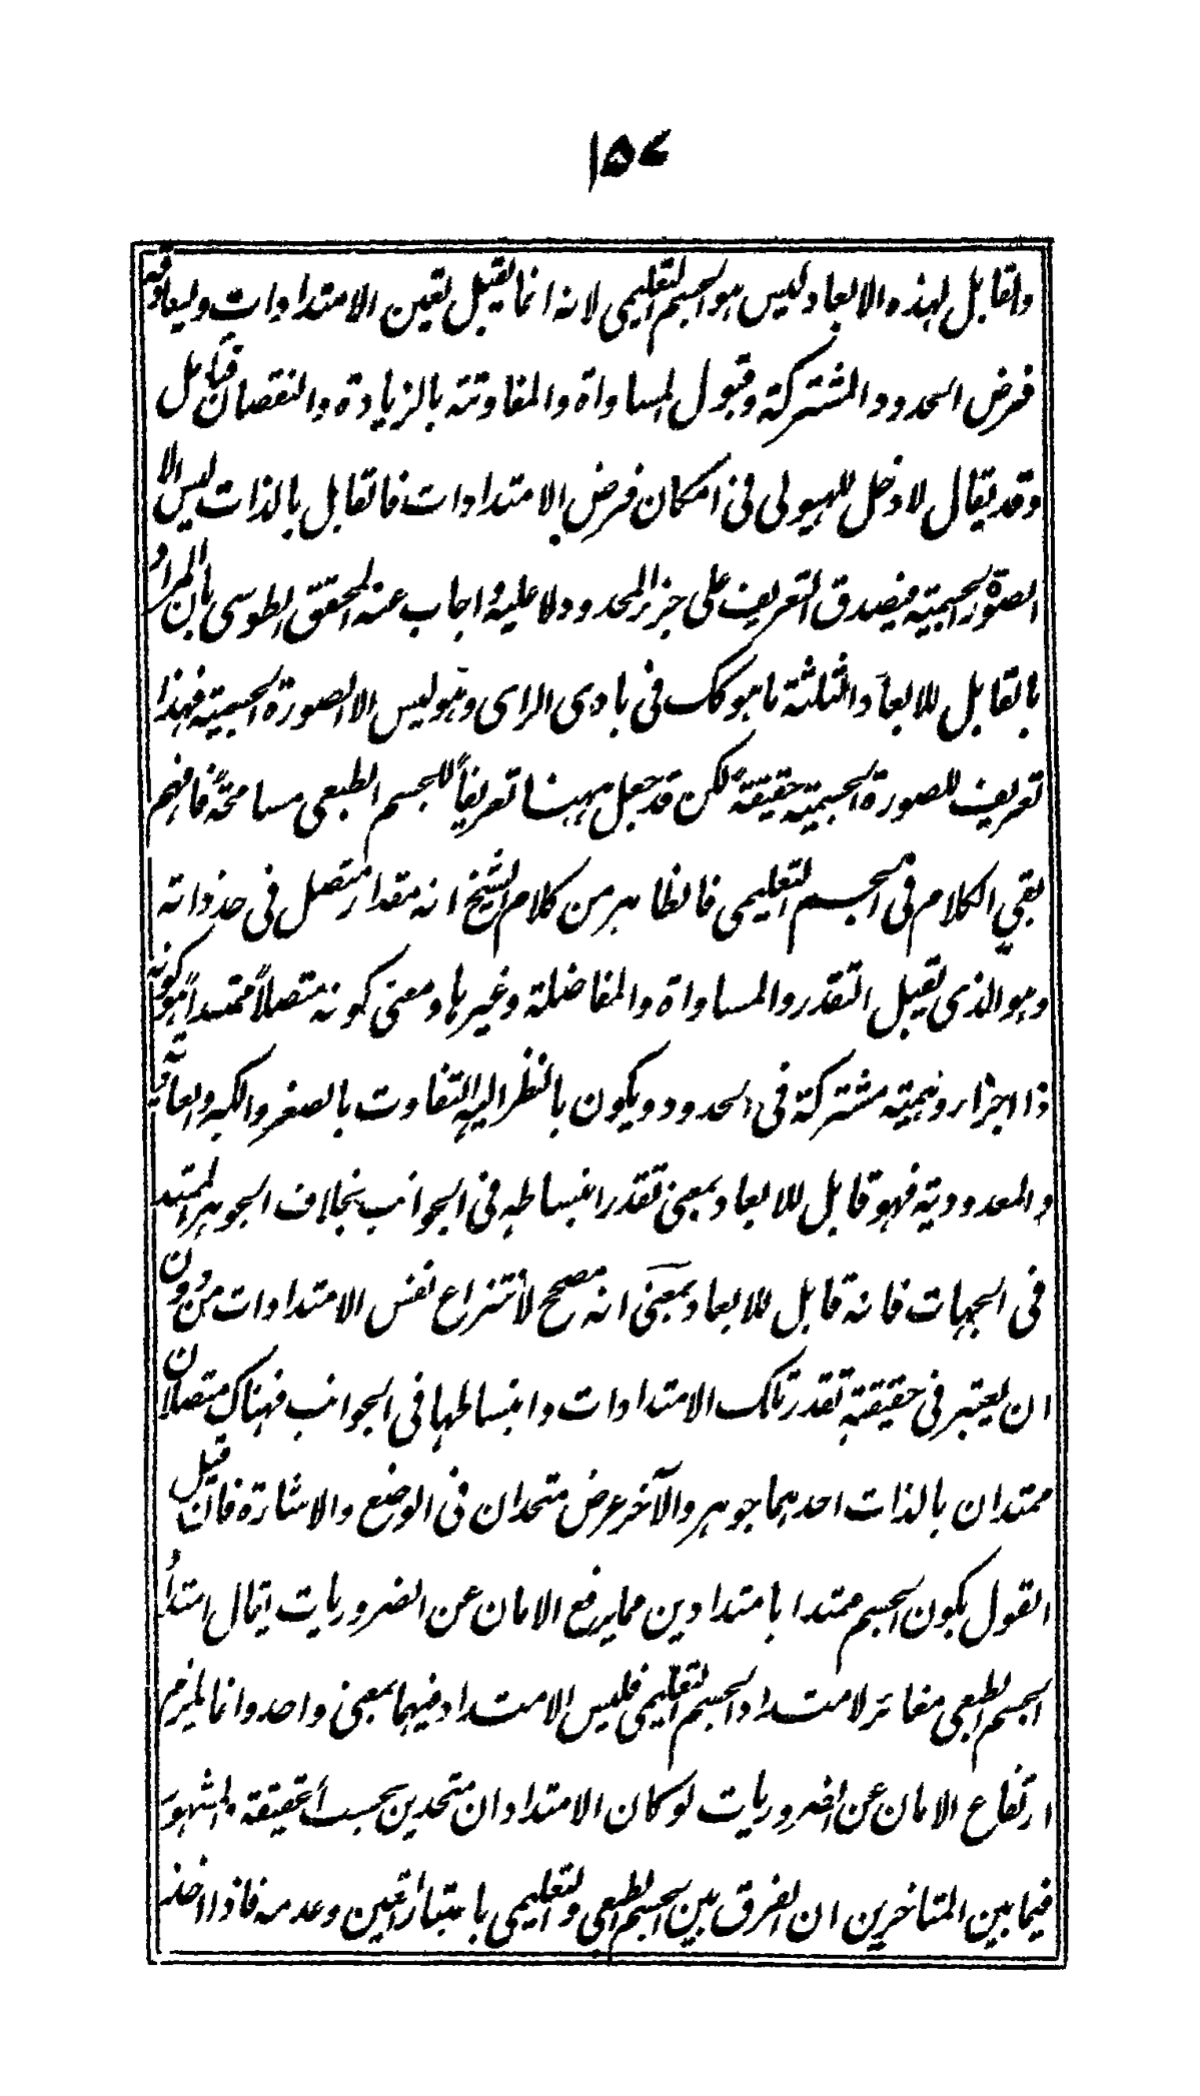 ١٥٧
والقابل لهذه الابعاد ليس هو الجسم التعليمى لانه انما يقبل تعين الامتدادات وليعاونه
فرض الحدود المشتركة وقبول المساواة والمفاوتة بالزيادة والنقصان فتأمل
وقد يقال لا دخل للهيولى فى امكان فرض الامتدادات فالقابل بالذات ليس الا
الصورة الجسمية فيصدق التعريف على جزء المحدود لا عليه واجاب عنه المحقق الطوسى بان المراد
بالقابل للابعاد الثلثة ما هو كك فى بادى الراى وهو ليس الا الصورة الجسمية فهذا
تعريف للصورة الجسمية حقيقةً لكن قد جعل ههنا تعريفاً للجسم الطبعى مسامحةً فافهم
بقي الكلام فى الجسم التعليمى فالظاهر من كلام الشيخ انه مقدار متصل فى حد ذاته
وهو الذى يقبل التقدر والمساواة والمفاضلة وغيرها ومعنى كونه متصلاً ممتداً هو كونه
ذا اجزاء وهمية مشتركة فى الحدود ويكون بالنظر اليه التفاوت بالصغر والكبر والعادّية
والمعدودية فهو قابل للابعاد بمعنى تقدر انبساطه فى الجوانب بخلاف الجوهر الممتد
فى الجهات فانه قابل للابعاد بمعنى انه مصحح لانتزاع نفس الامتدادات من دون
ان يعتبر فى حقيقته تقدر تلك الامتدادات وانبساطها فى الجوانب فهناك متصلان
ممتدان بالذات احدهما جوهر والآخر عرض متحدان فى الوضع والاشارة فان قيل
القول بكون الجسم ممتدا بامتدادين مما يرفع الامان عن الضروريات يقال امتداد
الجسم الطبعى مغائر لامتداد الجسم التعليمى فليس الامتداد فيهما بمعنى واحد وانما يلزم
ارتفاع الامان عن الضروريات لو كان الامتدادان متحدين بحسب الحقيقة والمشهور
فيما بين المتاخرين ان الفرق بين الجسم الطبعى والتعليمى باعتبار التعين وعدمه فاذا اخذ